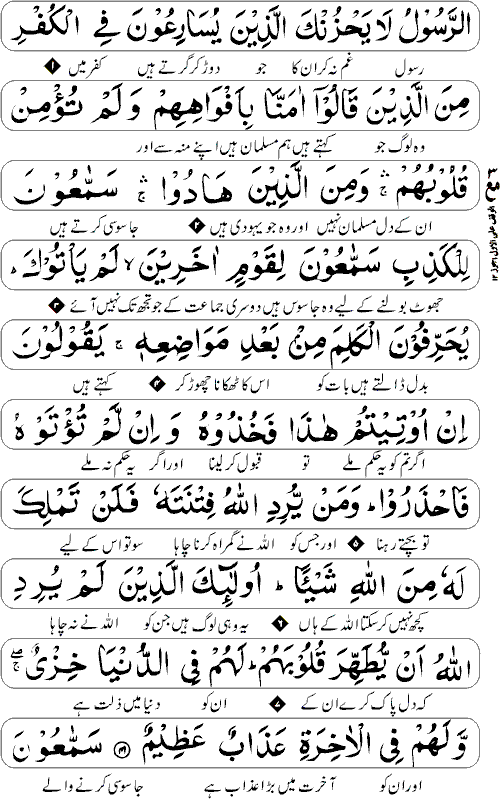 الرَّسُوْلُ لَا يَحْزُنْكَ الَّذِيْنَ يُسَارِعُوْنَ فِي الْكُفْرِ
رسول غم نہ کر ان کا جو دوڑ کر گرتے ہیں کفر میں ۱
مِنَ الَّذِيْنَ قَالُوْٓا اٰمَنَّا بِاَفْوَاهِهِمْ وَلَمْ تُؤْمِنْ
وہ لوگ جو کہتے ہیں ہم مسلمان ہیں اپنے منہ سے اور
قُلُوْبُهُمْ ۛ وَمِنَ الَّذِيْنَ هَادُوْا ۛ سَمّٰعُوْنَ
ان کے دل مسلمان نہیں اور وہ جو یہودی ہیں ۲ جاسوسی کرتے ہیں
لِلْكَذِبِ سَمّٰعُوْنَ لِقَوْمٍ اٰخَرِيْنَ ۙ لَمْ يَاْتُوْكَ ؕ
جھوٹ بولنے کے لیے وہ جاسوس ہیں دوسری جماعت کے جو تجھ تک نہیں آئے ۳
يُحَرِّفُوْنَ الْكَلِمَ مِنْۢ بَعْدِ مَوَاضِعِهٖ ۚ يَقُوْلُوْنَ
بدل ڈالتے ہیں بات کو اس کا ٹھکانا چھوڑ کر ۴ کہتے ہیں
اِنْ اُوْتِيْتُمْ هٰذَا فَخُذُوْهُ وَاِنْ لَّمْ تُؤْتَوْهُ
اگر تم کو یہ حکم ملے تو قبول کر لینا اور اگر یہ حکم نہ ملے
فَاحْذَرُوْا ؕ وَمَنْ يُّرِدِ اللّٰهُ فِتْنَتَهٗ فَلَنْ تَمْلِكَ
تو بچتے رہنا ۵ اور جس کو اللہ نے گمراہ کرنا چاہا سو تو اس کے لیے
لَهٗ مِنَ اللّٰهِ شَيْـًٔا ؕ اُولٰٓئِكَ الَّذِيْنَ لَمْ يُرِدِ
کچھ نہیں کر سکتا اللہ کے ہاں ۶ یہ وہی لوگ ہیں جن کو اللہ نے نہ چاہا
اللّٰهُ اَنْ يُّطَهِّرَ قُلُوْبَهُمْ ؕ لَهُمْ فِي الدُّنْيَا خِزْيٌ ۚۖ
کہ دل پاک کرے ان کے ۷ ان کو دنیا میں ذلت ہے
وَّلَهُمْ فِي الْاٰخِرَةِ عَذَابٌ عَظِيْمٌ ﴿۴۱﴾ سَمّٰعُوْنَ
اور ان کو آخرت میں بڑا عذاب ہے جاسوسی کرنے والے